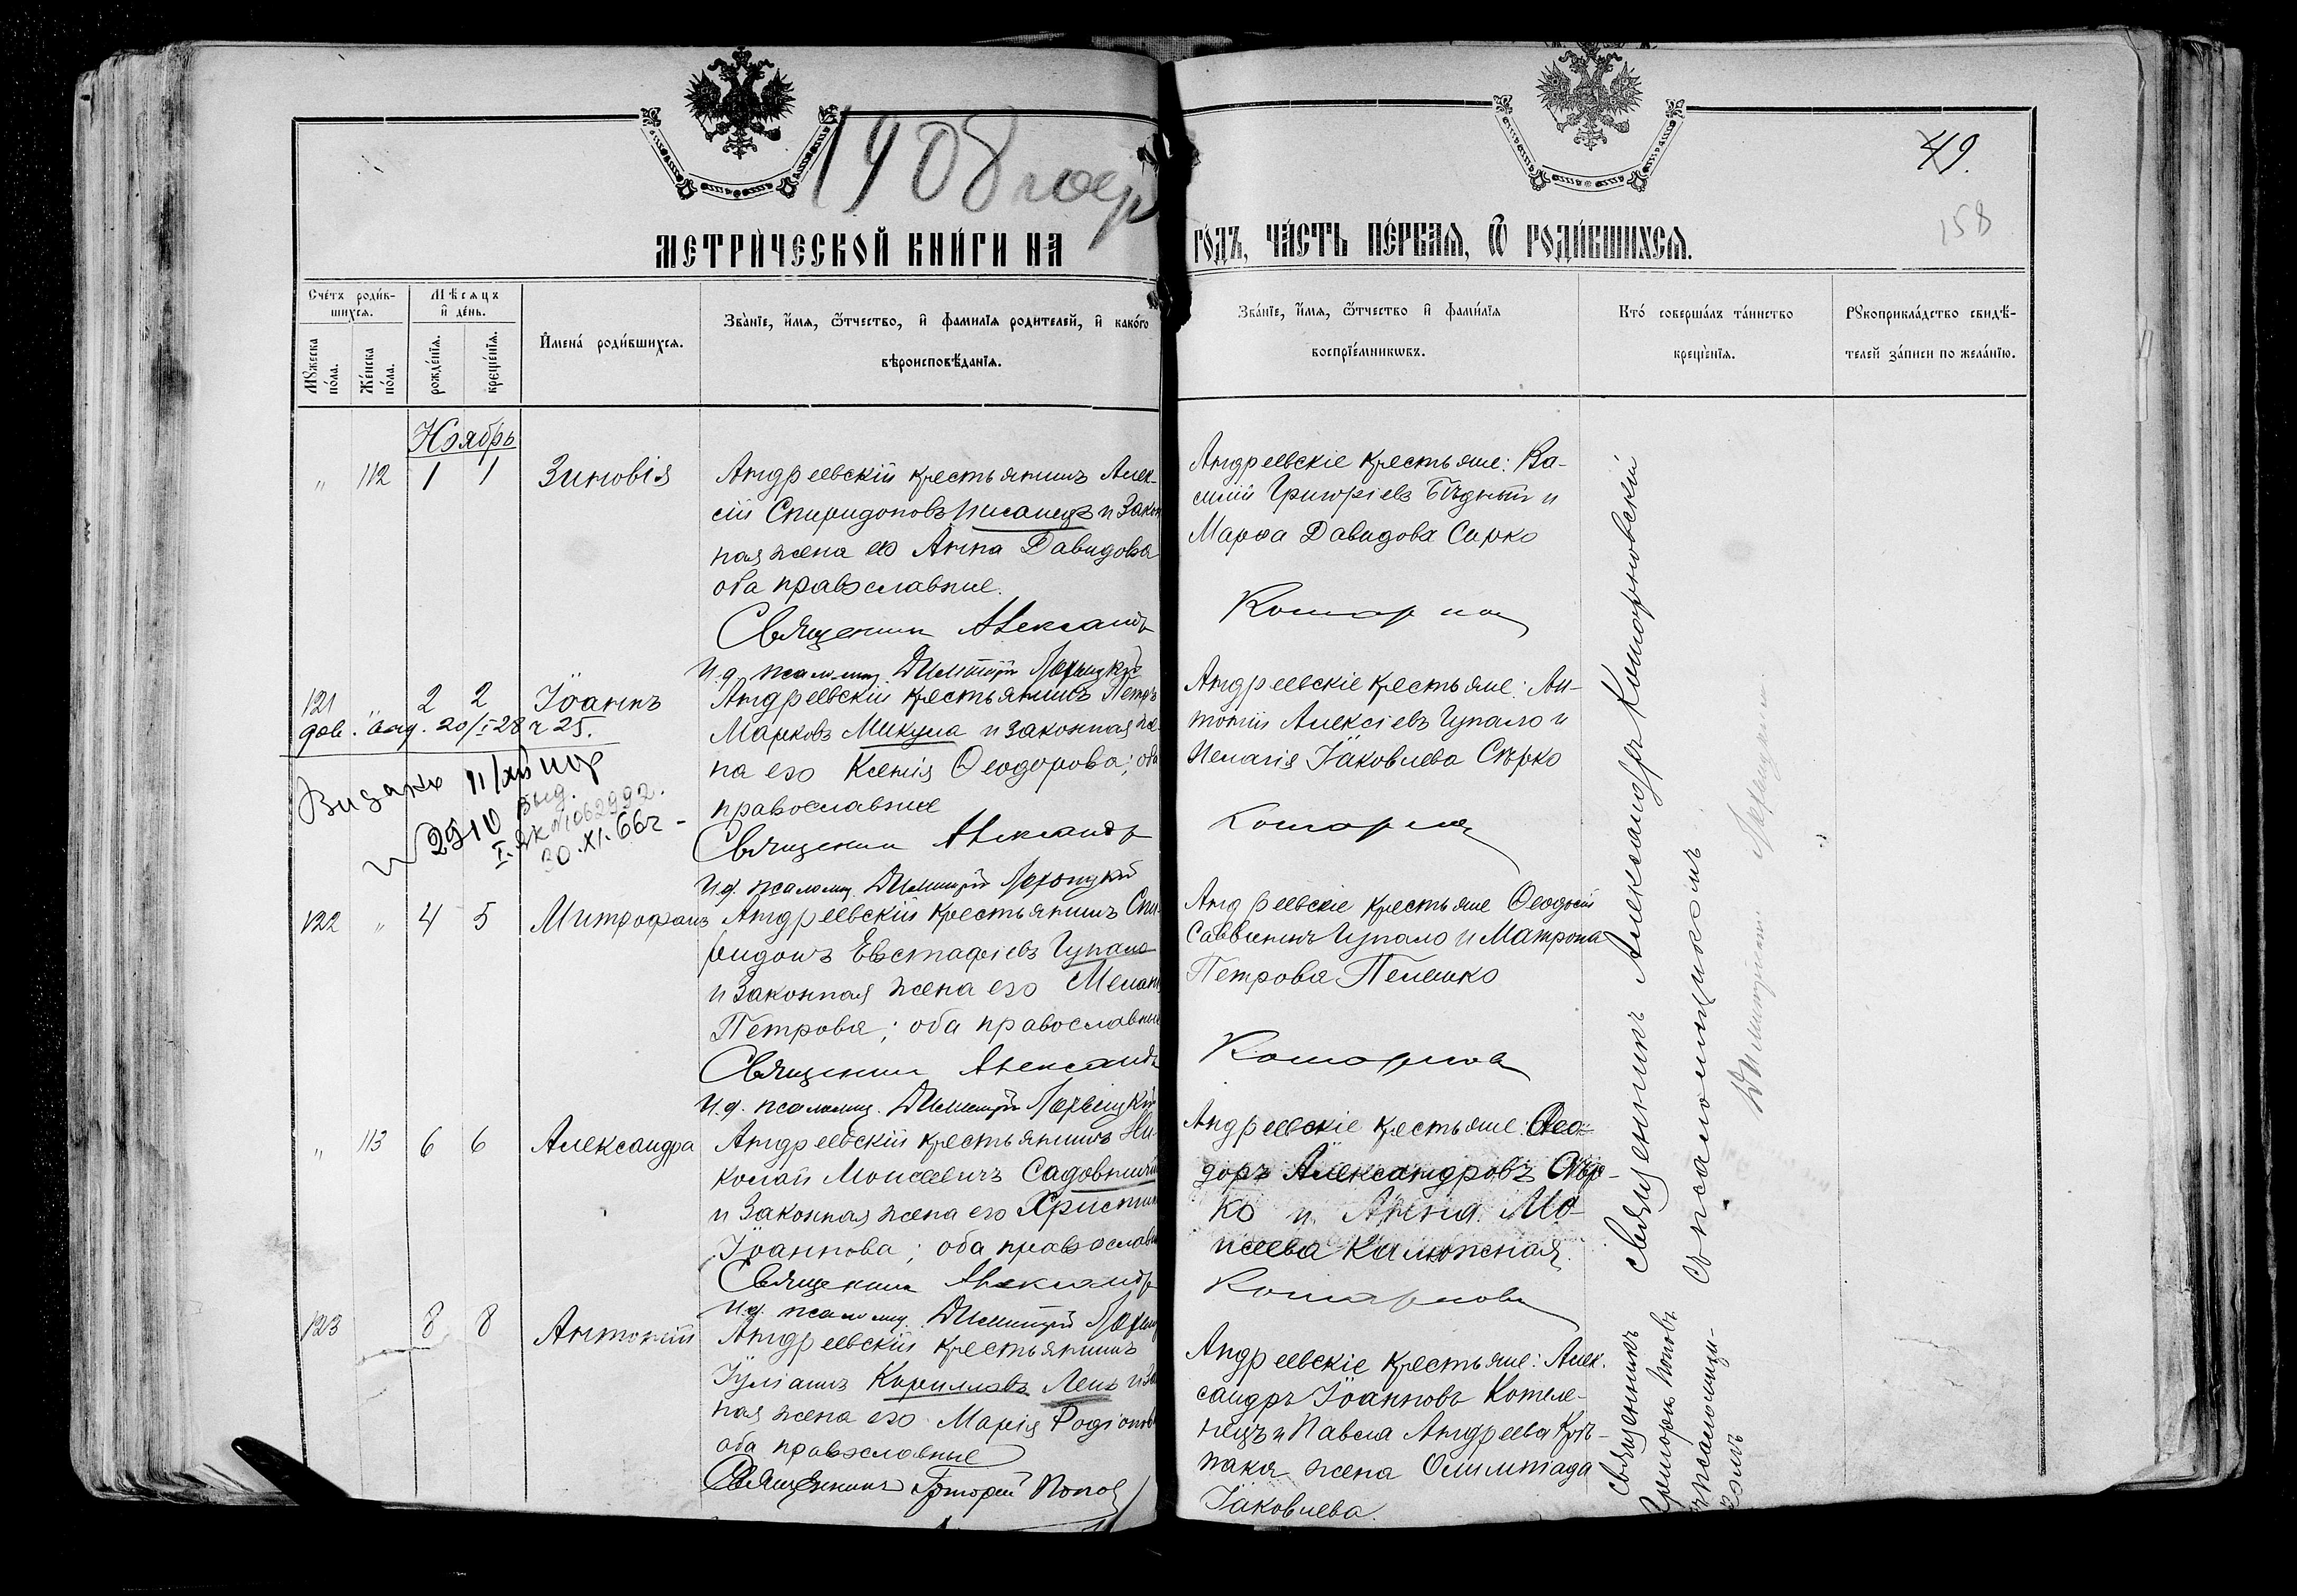 1908 года
49.
158
МЕТРИЧЕСКОЙ КНИГИ НА
ГОДЪ, ЧАСТЬ ПЕРВАЯ, Ѿ РОДИВШИХСЯ.
Счетъ родив-
шихся.
Мѣсяцъ
и день.
Мужеска
пола.
Женска
пола.
рожденія.
крещенія.
Имена родившихся.
Званіе, имя, ѿтчество, и фамилія родителей, и какого
вѣроисповѣданія.
Званіе, имя, ѿтчество и фамилія
воспріемниковъ.
Кто совершалъ таинство
крещенія.
Рукоприкладство свидѣ-
телей записи по желанію.
Ноябрь
" 112 1 1 Зиновія
Андреевскій крестьянинъ Алек-
сій Спиридоновъ Писанецъ и закон
ная жена его Анна Давидова
оба православные.
Священникъ Александръ
И.д. псаломщ. Димитрій
Андреевскіе крестьяне: Ва-
силій Григоріевъ Бѣдный и
Марѳа Давидова Сирко
121 " 2 2 Іоаннъ
20/I-28 г 25.
11/XII
2910 выд.
I-ЯК №1062992.
30.XI.66г -
Андреевскій крестьянинъ Петръ
Марковъ Микула и законная же
на его Ксенія Ѳеодорова; оба
православные
Священникъ Александръ
И.д. псаломщ. Димитрій
Андреевскіе крестьяне: Ан-
тоній Алексіевъ Чупало и
Пелагія Іаковлева Сѣрко
122 " 4 5 Митрофанъ
Андреевскій крестьянинъ Спи-
ридонъ Евстафіевъ Чупало
и законная жена его Мелан
Петрова; оба православные
Священникъ Александръ
И.д. псаломщ. Димитрій
Андреевскіе крестьяне Ѳеодосій
Саввинъ Чупало и Матрона
Петрова Пелешко
" 113 6 6 Александра
Андреевскій крестьянинъ Ни-
колай Моисеевичъ Садовничій
и законная жена его Христин
Іоаннова; оба православн
Священникъ Александръ
И.д. псаломщ. Димитрій
Андреевскіе крестьяне: Ѳео-
доръ Александровъ Сѣр-
ко и Анна Мо-
исеева Калюжная.
123 8 8 Антоній
Андреевскій крестьянинъ
Іуліанъ Кирилловъ Лень и за
ная жена его Марія Родіонов
оба православные
Священникъ Григорій Попов
Андреевскіе крестьяне: Алек-
сандръ Іоанновъ Котеле-
нецъ и Павла Андреева
жена Олимпіада
Іаковлева.
Священникъ Александръ Комарновскій
съ псаломщикомъ
Димитріемъ
Священникъ
Григорій Поповъ
съ псаломщи-
комъ